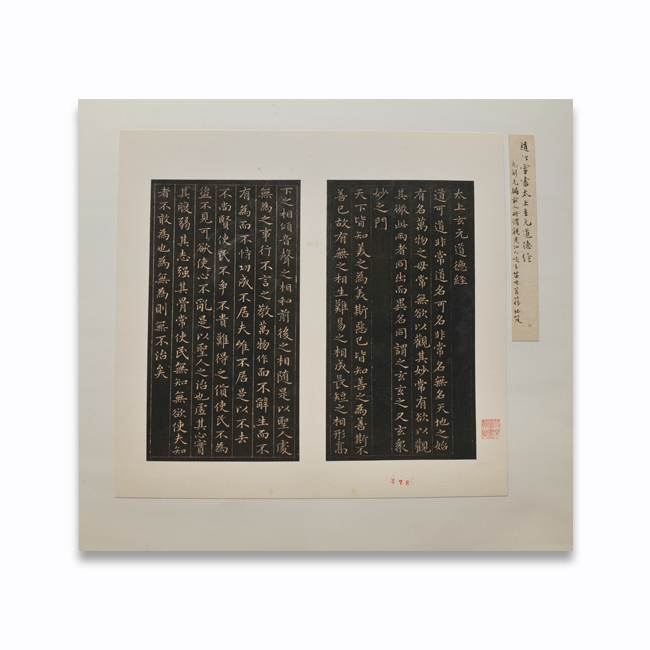 雪書太上玄元道德經
太上玄元道德經
道可道非常道名可名非常名無名天地之始
有名萬物之母常無欲以觀其妙常有欲以觀
其徼此兩者同出而異名同謂之玄玄之又玄衆
妙之門
天下皆知美之為美斯惡已皆知善之為善斯不
善已故有無之相生難易之相成長短之相形高
下之相傾音聲之相和前後之相隨是以聖人處
無為之事行不言之教萬物作而不辭生而不
有為而不恃功成不居夫惟不居是以不去
不尚賢使民不爭不貴難得之貨使民不為
盜不見可欲使心不亂是以聖人之治也虛其心實
其腹弱其志强其骨常使民無知無欲使夫知
者不敢為也為無為則無不治矣